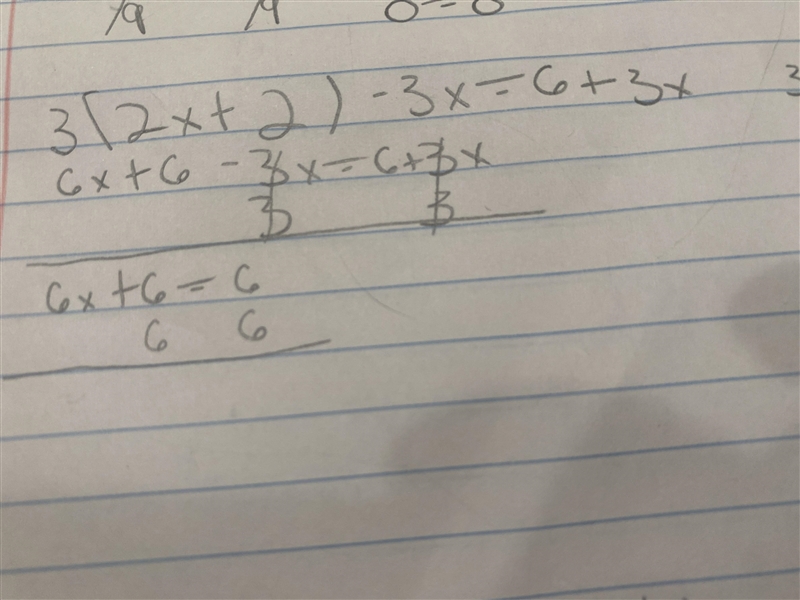 19 19 0=0
3(2x+2) -3x=6+3x 3
6x+6 -3x=6+3x
3 3
6x+6=6
6 6